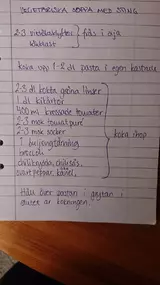 VEGETARISKA SOPPA MED STING
2-3 vitlöksklyftor } fräs i olja
Koka upp 1-2 dl pasta i egen kastrull
2-3 dl kokta gröna linser
1 dl
500 ml krossade tomater
2-3 msk tomatpuré
2-3 msk socker
1 buljongtärning
broccoli
svartpeppar,
koka ihop
Häll över pastan i grytan,